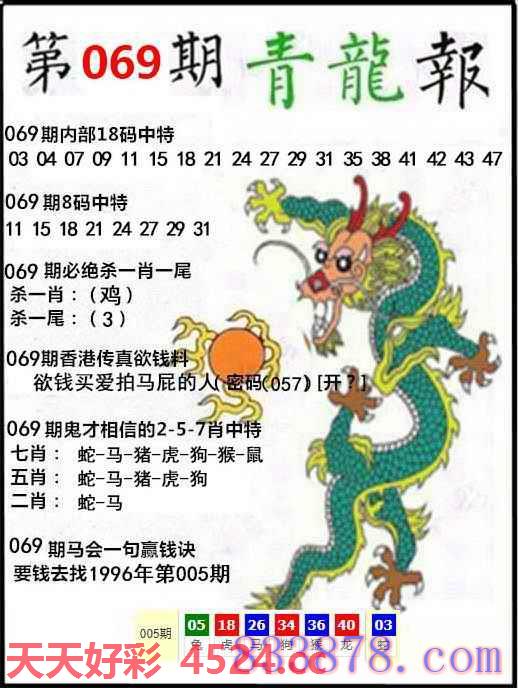 第069期 青龍報
069期内部18码中特
03 04 07 09 11 15 18 21 24 27 29 31 35 38 41 42 43 47
069期8码中特
11 15 18 21 24 27 29 31
069期必绝杀一肖一尾
杀一肖：（鸡）
杀一尾：（3）
069期香港传真欲钱料
欲钱买爱拍马屁的人(密码(057)[开?]
069期鬼才相信的2-5-7肖中特
七肖： 蛇-马-猪-虎-狗-猴-鼠
五肖： 蛇-马-猪-虎-狗
二肖： 蛇-马
069期马会一句赢钱诀
要钱去找1996年第005期
005期 05 18 26 34 36 40 03
兔 虎 马 狗 猴 龙 蛇
天天好彩 4524.cc
333878.com